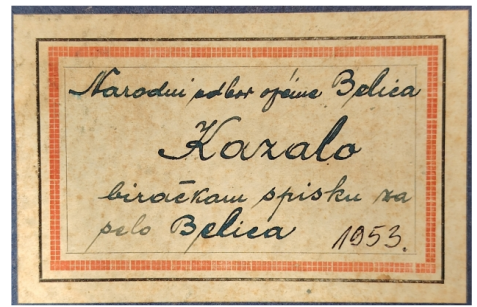 Narodni odbor općine Belica
Kazalo
biračkam spisku za
selo Belica 1953.